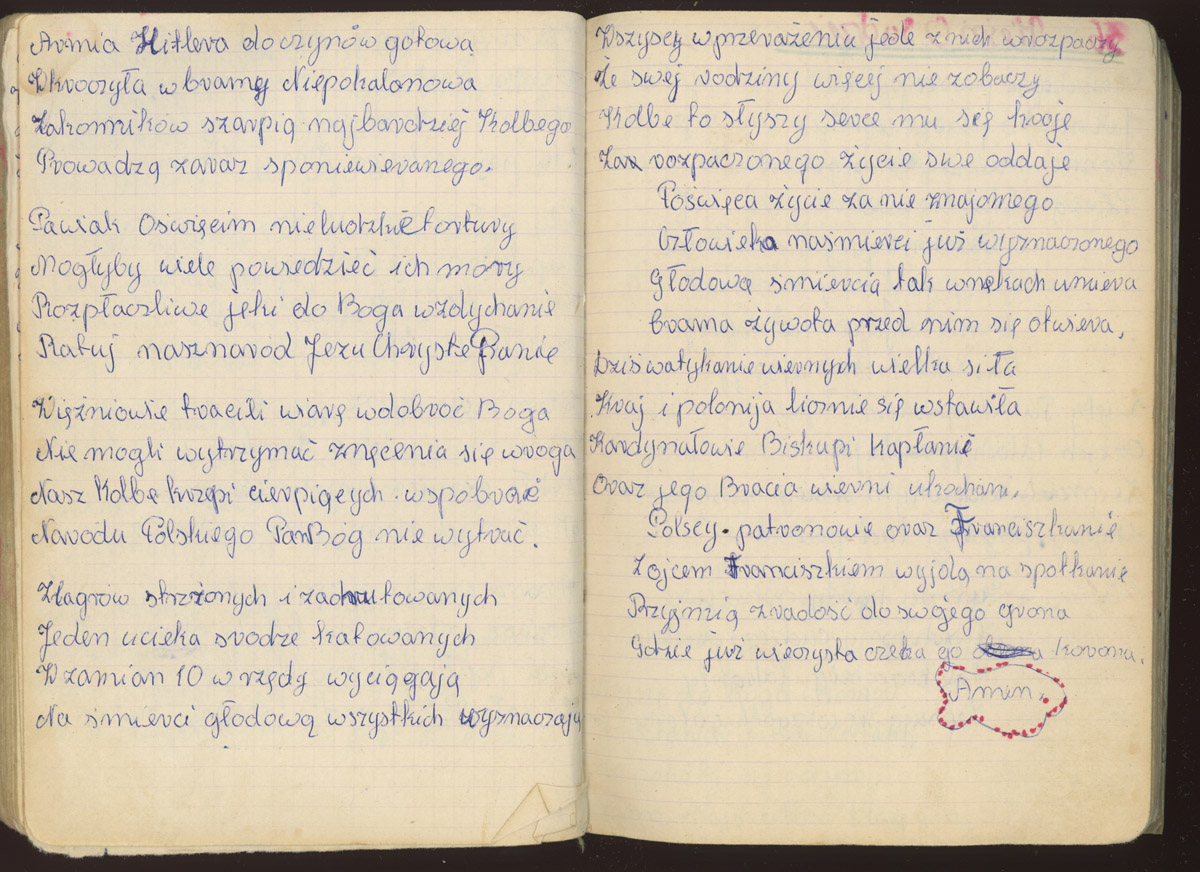 Armia Hitlera do czynów gotowa
Wkroczyła w bramy Niepokalanowa
Zakonników szarpią najbardziej Kolbego
Prowadzą zaraz sponiewieranego.
Pawiak Oświęcim nieludzkie tortury
Mogłyby wiele powiedzieć ich mury
Rozpłaczliwe jęki do Boga wzdychanie
Ratuj nasz naród Jezu Chryste Panie
Więźniowie tracili wiarę w dobroć Boga
Nie mogli wytrzymać znęcenia się wroga
Nasz Kolbe krzepi cierpiących współbraci
Narodu Polskiego Pan Bóg nie wytrać.
Z łagrów strzżonych i zadrutowanych
Jeden ucieka srodze katowanych
W zamian 10 w rzędy wyciągają
Na śmierć głodową wszystkich wyznaczają
Wszyscy w przerażeniu jede z nich w rozpaczy
Że swej rodziny więcej nie zobaczy
Kolbe to słyszy serce mu się kroje
Za rozpaczonego życie swe oddaje
Poświęca życie za nie znajomego
Człowieka na śmierci już wyznaczonego
Głodową śmiercią tak w mękach umiera
brama żywota przed nim się otwiera,
Dziś w watykanie wiernych wielka siła
Kraj i polonija licznie się wstawiła
Kardynałowie Biskupi Kapłanie
Oraz jego Bracia wierni ukochani.
Polscy patronowie oraz Franciszkanie
Z ojcem Franciszkiem wyjdą na spotkanie
Przyjmią z radość do swojego grona
Gdzie już wieczysta czeka go korona.
Amen.